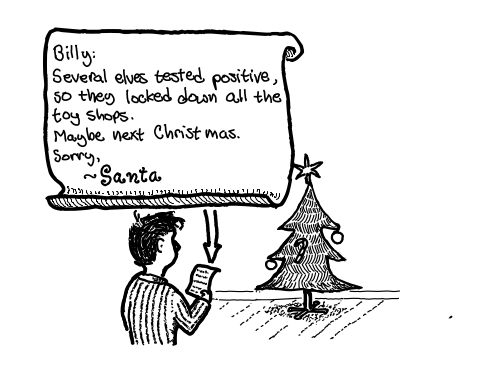 Billy:
Several elves tested positive,
so they locked down all the
toy shops.
Maybe next Christmas.
Sorry,
~Santa